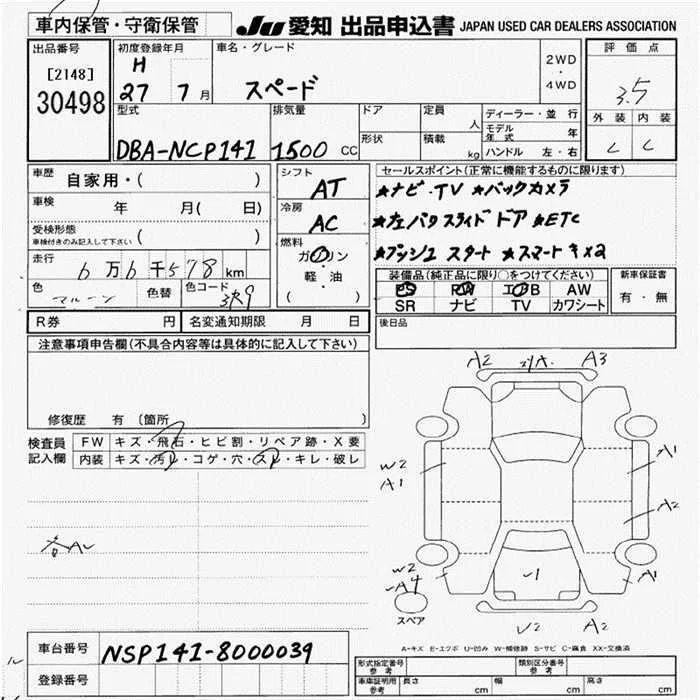 車内保管・守衛保管
JU 愛知 出品申込書 JAPAN USED CAR DEALERS ASSOCIATION
出品番号
[2148]
30498
初度登録年月
H
27 7月
車名・グレード
スペード
2WD
・
4WD
評価点
3.5
外装 内装
C C
型式
DBA-NCP141
排気量
1500 CC
ドア
形状
定員
人
積載
kg
ディーラー・並行
モデル年式 年
ハンドル 左・右
車歴 自家用・( )
車検 年 月( 日)
受検形態
車検付きのみ記入して下さい ( )
走行 6万6千578km
色 マルーン 色替 色コード 3R9
シフト
AT
冷房
AC
燃料
ガソリン
軽・油
( )
セールスポイント(正常に機能するものに限ります)
★ナビ・TV ★バックカメラ
★左パワスライドドア ★ETC
★プッシュスタート ★スマートキx2
装備品(純正品に限り○をつけてください)
PS PW エアB AW
SR ナビ TV カワシート
新車保証書
有・無
R券 円 名変通知期限 月 日
後日品
注意事項申告欄(不具合内容等は具体的に記入して下さい)
修復歴 有(箇所 )
検査員記入欄
FW キズ・飛石・ヒビ割・リペア跡・X要
内装 キズ・汚レ・コゲ・穴・スレ・キレ・破レ
A2 A3
W2
A1
A1
A2
W2
A4
A1
スペア
U2 A2
A-キズ E-エクボ U-凹み W-補修跡 S-サビ C-腐食 XX-交換済
車台番号 NSP141-8000039
登録番号
形式指定番号
参考
類別区分番号
参考
車庫証明用
参考
長さ cm 幅 cm 高さ cm